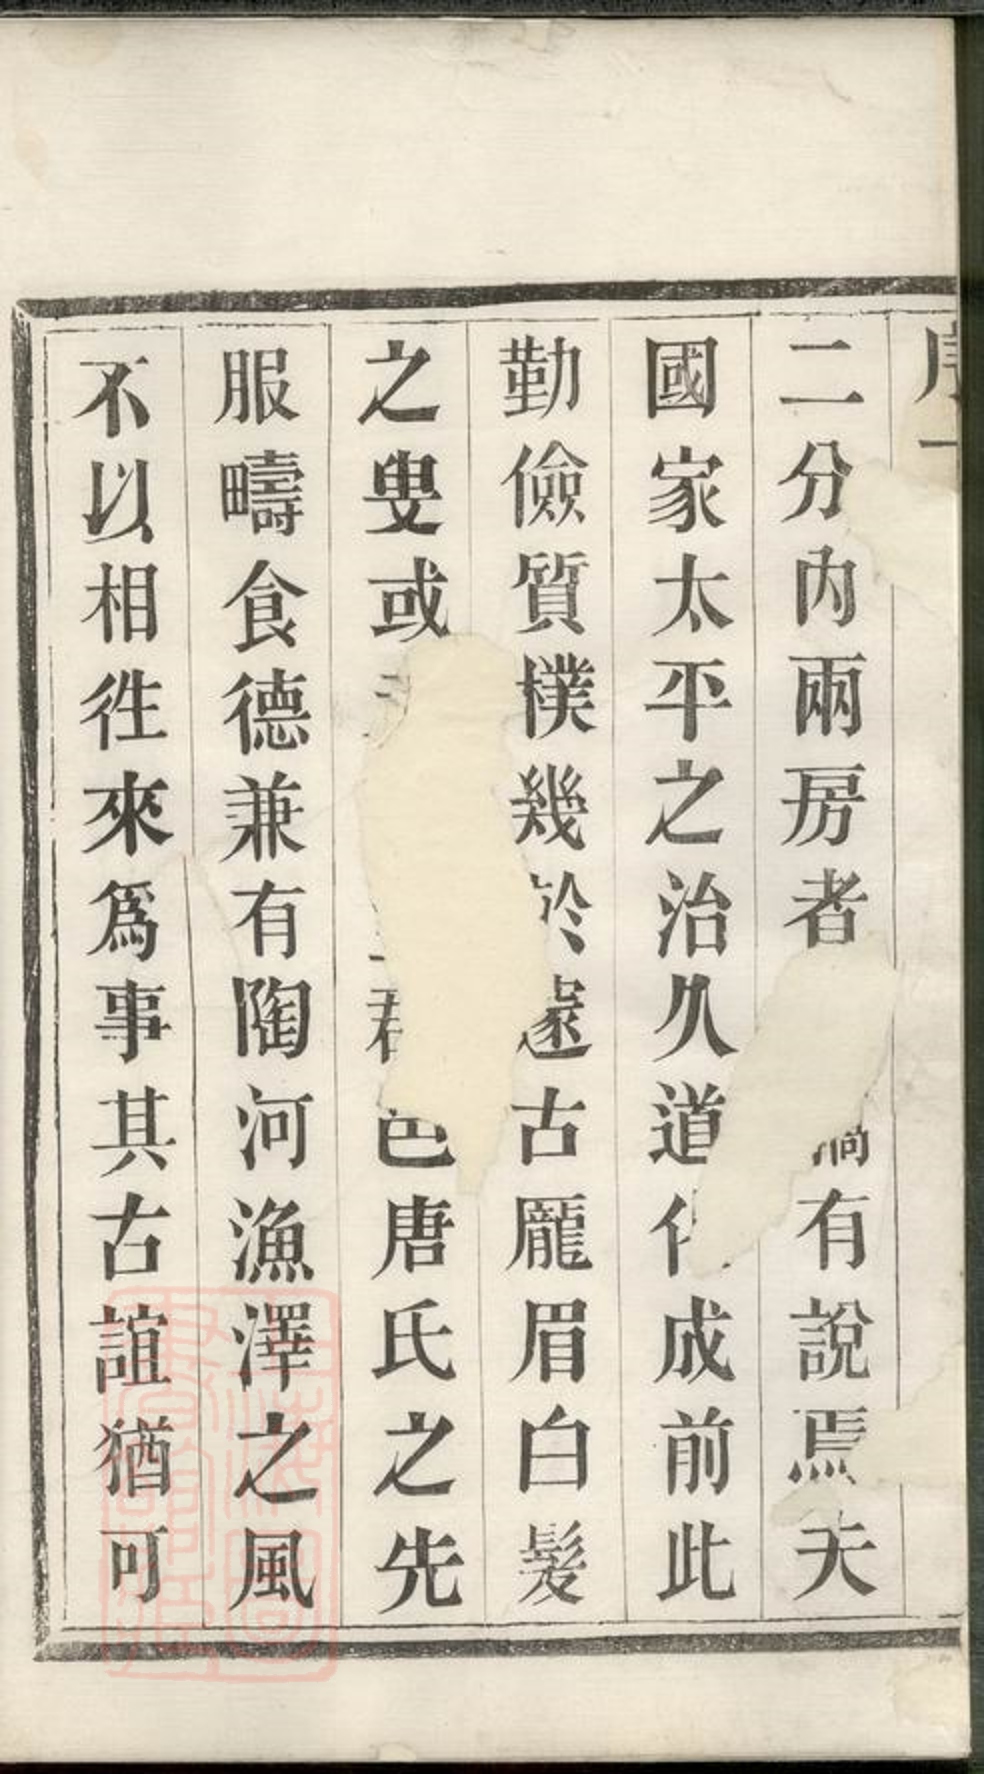 序
二分內兩房者有說焉夫
國家太平之治久道成前此
勤儉質樸幾於遠古龐眉白髮
之叟或君邑唐氏之先
服疇食德兼有陶河漁澤之風
不以相徃來為事其古誼猶可